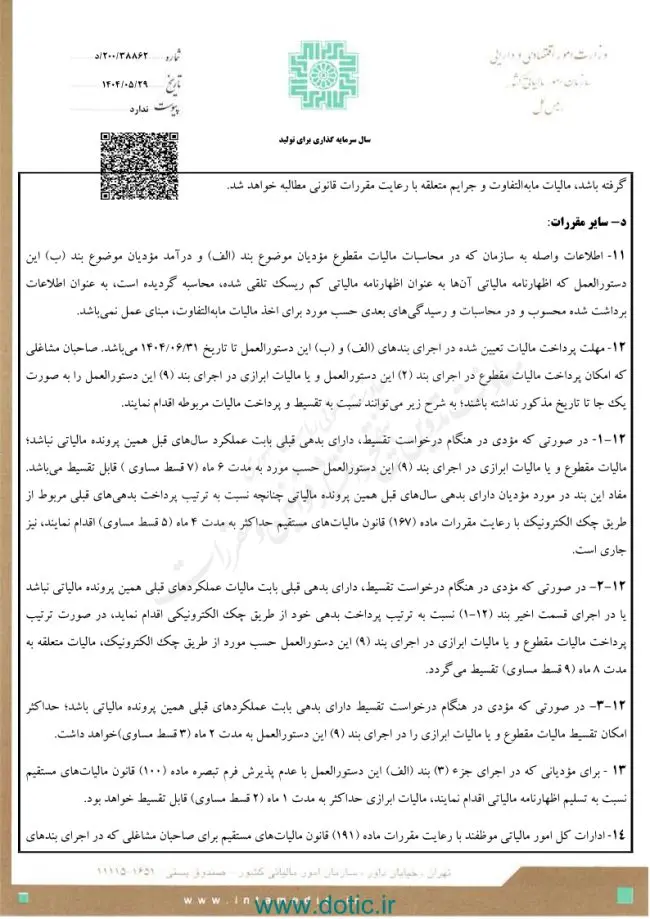 وزارت امور اقتصادی و دارایی
سازمان امور مالیاتی کشور
رئیس کل
شماره ۲۰۰/۳۸۸۶۲/د
تاریخ ۱۴۰۴/۰۵/۲۹
پیوست ندارد
سال سرمایه گذاری برای تولید
گرفته باشد، مالیات مابه‌التفاوت و جرایم متعلقه با رعایت مقررات قانونی مطالبه خواهد شد.
د- سایر مقررات:
۱۱- اطلاعات واصله به سازمان که در محاسبات مالیات مقطوع مؤدیان موضوع بند (الف) و درآمد مؤدیان موضوع بند (ب) این
دستورالعمل که اظهارنامه مالیاتی آن‌ها به عنوان اظهارنامه مالیاتی کم ریسک تلقی شده، محاسبه گردیده است، به عنوان اطلاعات
برداشت شده محسوب و در محاسبات و رسیدگی‌های بعدی حسب مورد برای اخذ مالیات مابه‌التفاوت، مبنای عمل نمی‌باشد.
۱۲- مهلت پرداخت مالیات تعیین شده در اجرای بندهای (الف) و (ب) این دستورالعمل تا تاریخ ۱۴۰۴/۰۶/۳۱ می‌باشد. صاحبان مشاغلی
که امکان پرداخت مالیات مقطوع در اجرای بند (۲) این دستورالعمل و یا مالیات ابرازی در اجرای بند (۹) این دستورالعمل را به صورت
یک جا تا تاریخ مذکور نداشته باشند؛ به شرح زیر می‌توانند نسبت به تقسیط و پرداخت مالیات مربوطه اقدام نمایند.
۱۲-۱- در صورتی که مؤدی در هنگام درخواست تقسیط، دارای بدهی قبلی بابت عملکرد سال‌های قبل همین پرونده مالیاتی نباشد؛
مالیات مقطوع و یا مالیات ابرازی در اجرای بند (۹) این دستورالعمل حسب مورد به مدت ۶ ماه (۷ قسط مساوی ) قابل تقسیط می‌باشد.
مفاد این بند در مورد مؤدیان دارای بدهی سال‌های قبل همین پرونده مالیاتی چنانچه نسبت به ترتیب پرداخت بدهی‌های قبلی مربوط از
طریق چک الکترونیک با رعایت مقررات ماده (۱۶۷) قانون مالیات‌های مستقیم حداکثر به مدت ۴ ماه (۵ قسط مساوی) اقدام نمایند، نیز
جاری است.
۱۲-۲- در صورتی که مؤدی در هنگام درخواست تقسیط، دارای بدهی قبلی بابت مالیات عملکردهای قبلی همین پرونده مالیاتی نباشد
یا در اجرای قسمت اخیر بند (۱۲-۱) نسبت به ترتیب پرداخت بدهی خود از طریق چک الکترونیکی اقدام نماید، در صورت ترتیب
پرداخت مالیات مقطوع و یا مالیات ابرازی در اجرای بند (۹) این دستورالعمل حسب مورد از طریق چک الکترونیک، مالیات متعلقه به
مدت ۸ ماه (۹ قسط مساوی) تقسیط می‌گردد.
۱۲-۳- در صورتی که مؤدی در هنگام درخواست تقسیط دارای بدهی بابت عملکردهای قبلی همین پرونده مالیاتی باشد؛ حداکثر
امکان تقسیط مالیات مقطوع و یا مالیات ابرازی را در اجرای بند (۹) این دستورالعمل به مدت ۲ ماه (۳ قسط مساوی)خواهد داشت.
۱۳ - برای مؤدیانی که در اجرای جزء (۳) بند (الف) این دستورالعمل با عدم پذیرش فرم تبصره ماده (۱۰۰) قانون مالیات‌های مستقیم
نسبت به تسلیم اظهارنامه مالیاتی اقدام نمایند، مالیات ابرازی حداکثر به مدت ۱ ماه (۲ قسط مساوی) قابل تقسیط خواهد بود.
۱۴- ادارات کل امور مالیاتی موظفند با رعایت مقررات ماده (۱۹۱) قانون مالیات‌های مستقیم برای صاحبان مشاغلی که در اجرای بندهای
تهران - خیابان داور - سازمان امور مالیاتی کشور - صندوق پستی ۱۶۵۱-۱۱۱۱۵
www.intamedia.ir
www.dotic.ir